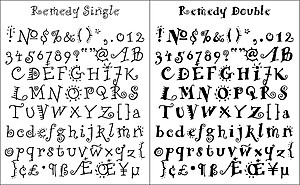 Remedy Single
!№$%&{}*,.012
3456789?“”@AB
CDEFGHIJK
LMNOPQRS
TUVWXYZ[]a
bcdefghijklmn
opqrstuvwxyz{
}¢£·¶ßÆŒ¥µ
Remedy Double
!№$%&{}*,.012
3456789?“”@AB
CDEFGHIJK
LMNOPQRS
TUVWXYZ[]a
bcdefghijklmn
opqrstuvwxyz{
}¢£·¶ßÆŒ¥µ